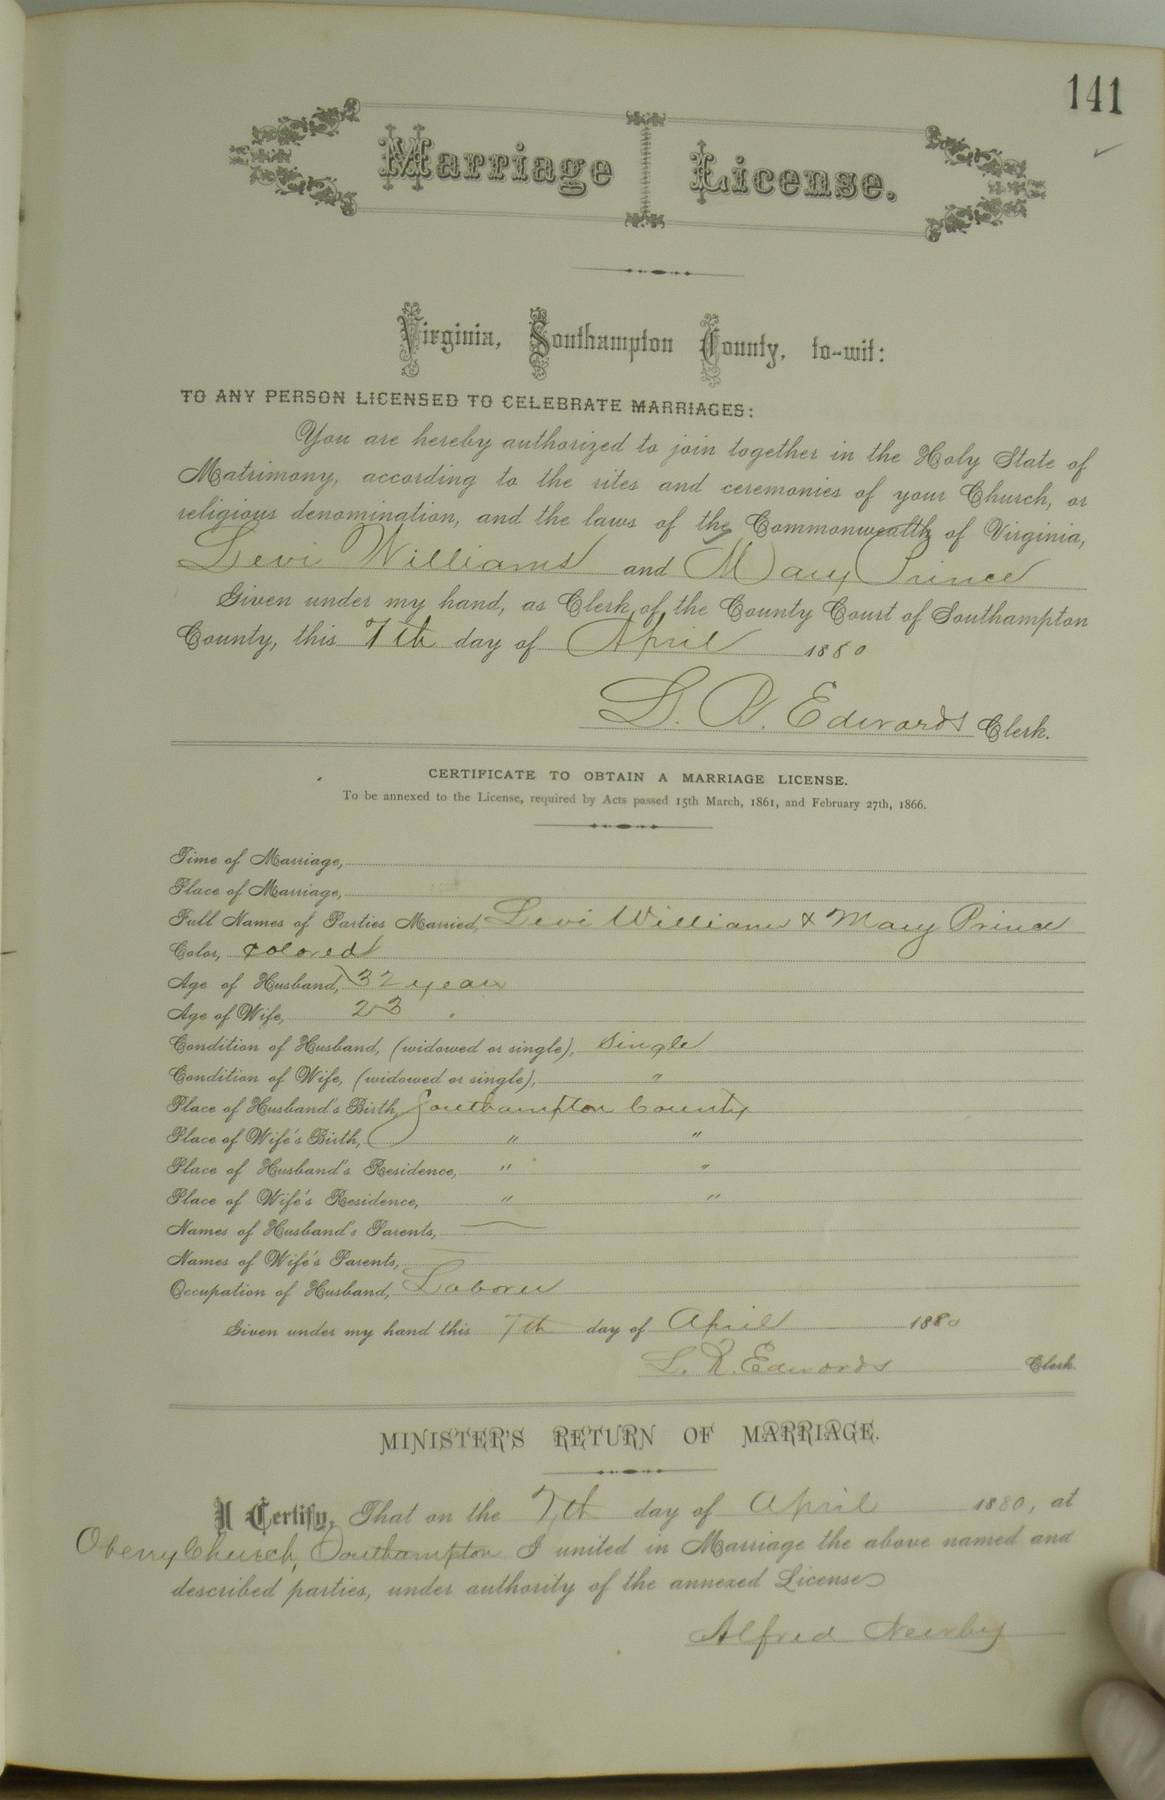 141
Marriage License.
Virginia, Southampton County, to-wit:
TO ANY PERSON LICENSED TO CELEBRATE MARRIAGES:
You are hereby authorized to join together in the Holy State of
Matrimony, according to the rites and ceremonies of your Church, or
religious denomination, and the laws of the Commonwealth of Virginia,
Levi Williams and Mary Prince
Given under my hand, as Clerk of the County Court of Southampton
County, this 7th day of April 1880
L. R. Edwards Clerk.
CERTIFICATE TO OBTAIN A MARRIAGE LICENSE.
To be annexed to the License, required by Acts passed 15th March, 1861, and February 27th, 1866.
Time of Marriage,
Place of Marriage,
Full Names of Parties Married, Levi Williams & Mary Prince
Color, colored
Age of Husband, 32 years
Age of Wife, 23 "
Condition of Husband, (widowed or single), Single
Condition of Wife, (widowed or single), "
Place of Husband's Birth, Southampton County
Place of Wife's Birth, " "
Place of Husband's Residence, " "
Place of Wife's Residence, " "
Names of Husband's Parents,
Names of Wife's Parents,
Occupation of Husband, Laborer
Given under my hand this 7th day of April 1880
L. R. Edwards Clerk.
MINISTER'S RETURN OF MARRIAGE.
I Certify, That on the 7th day of April 1880, at
Oberry Church, Southampton I united in Marriage the above named and
described parties, under authority of the annexed License
Alfred Newby